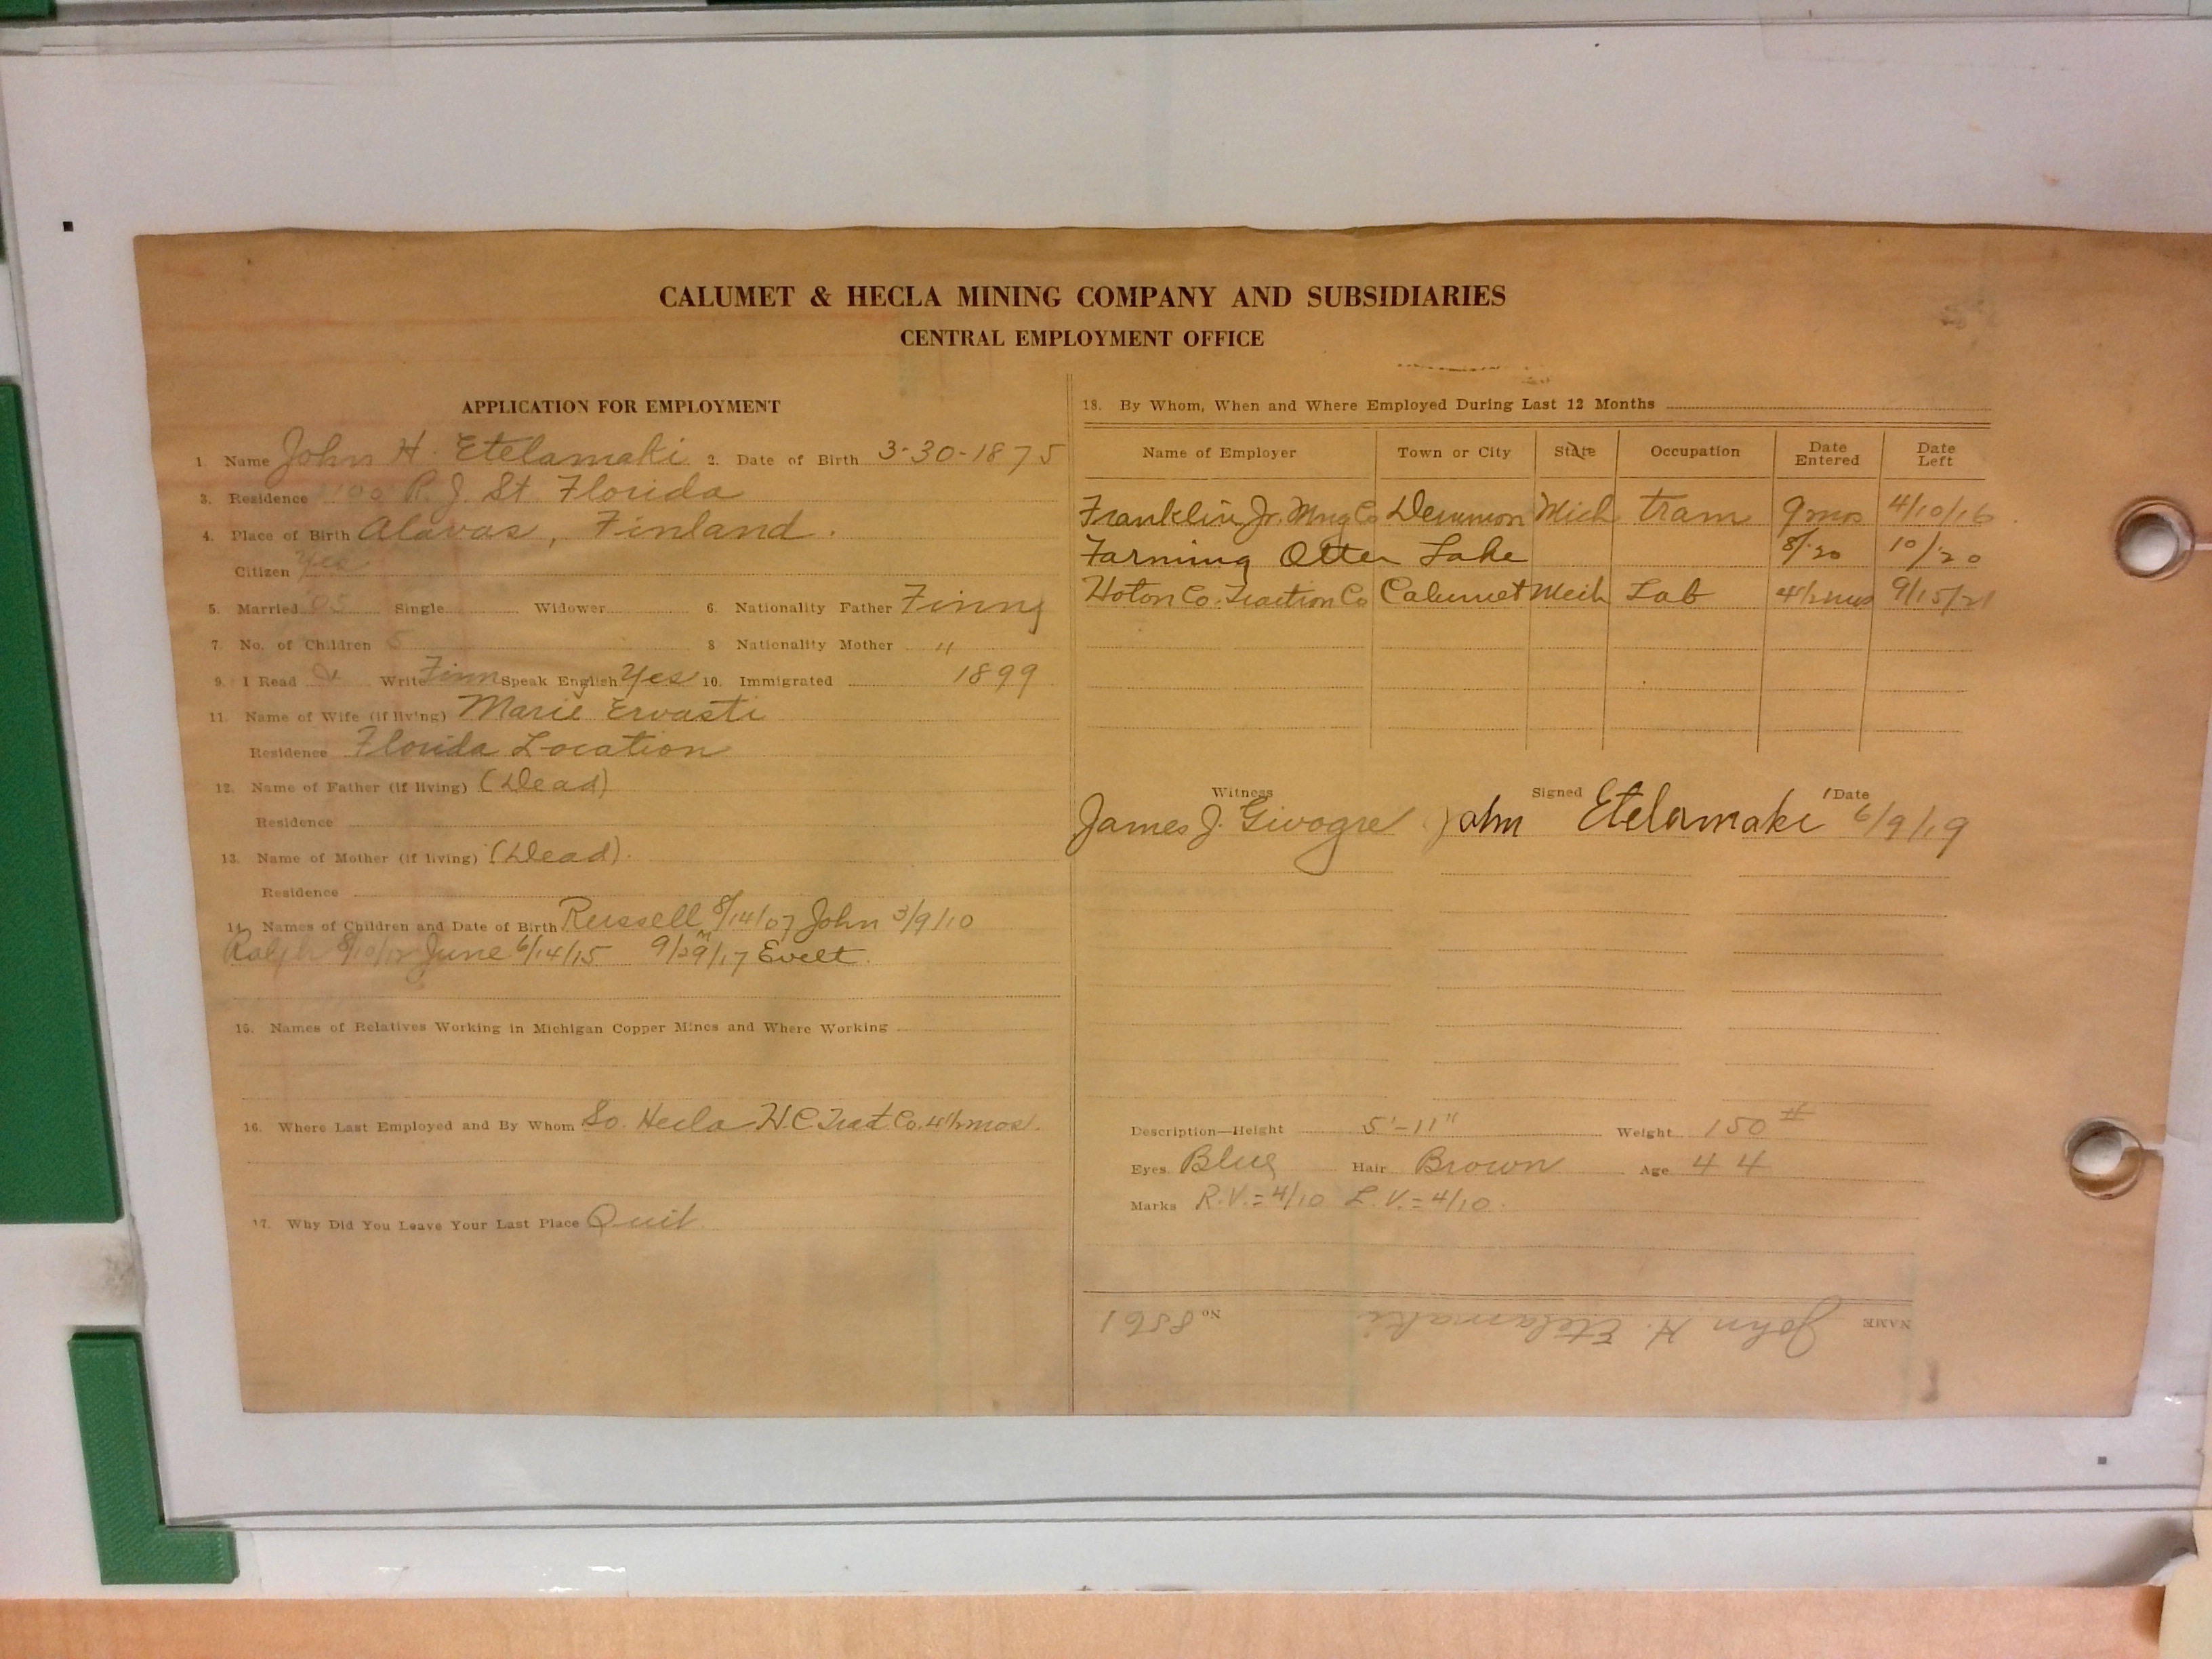 CALUMET & HECLA MINING COMPANY AND SUBSIDIARIES
CENTRAL EMPLOYMENT OFFICE
APPLICATION FOR EMPLOYMENT
1. Name John H. Etelamaki 2. Date of Birth 3-30-1875
3. Residence 100 R. J. St Florida
4. Place of Birth Alavus, Finland.
Citizen Yes
5. Married 05 Single Widower 6. Nationality Father Finn
7. No. of Children 5 8 Nationality Mother "
9. I Read & Write Finn Speak English Yes 10. Immigrated 1899
11. Name of Wife (if living) Marie Ervasti
Residence Florida Location
12. Name of Father (if living) (Dead)
Residence
13. Name of Mother (if living) (Dead).
Residence
14. Names of Children and Date of Birth Russell 8/14/07 John 3/9/10
Ralph 8/10/12 June 6/14/15 9/29/17 Evelt.
15. Names of Relatives Working in Michigan Copper Mines and Where Working
16. Where Last Employed and By Whom So. Hecla H.C. Tract Co. 4 1/2 mos.
17. Why Did You Leave Your Last Place Quit
18. By Whom, When and Where Employed During Last 12 Months
Name of Employer Town or City State Occupation Date Entered Date Left
Franklin Jr. Mng Co Demmon Mich tram 9 mos 4/10/16
Farming Otter Lake 8/20 10/20
Hoton Co. Traction Co Calumet Mich Lab 4 1/2 mos 9/15/21
Witness Signed Date
James J. Givogre John Etelamaki 6/9/19
Description—Height 5'-11" Weight 150 #
Eyes Blue Hair Brown Age 44
Marks R.V.=4/10 L.V.=4/10.
NAME John H. Etelamaki No. 8561